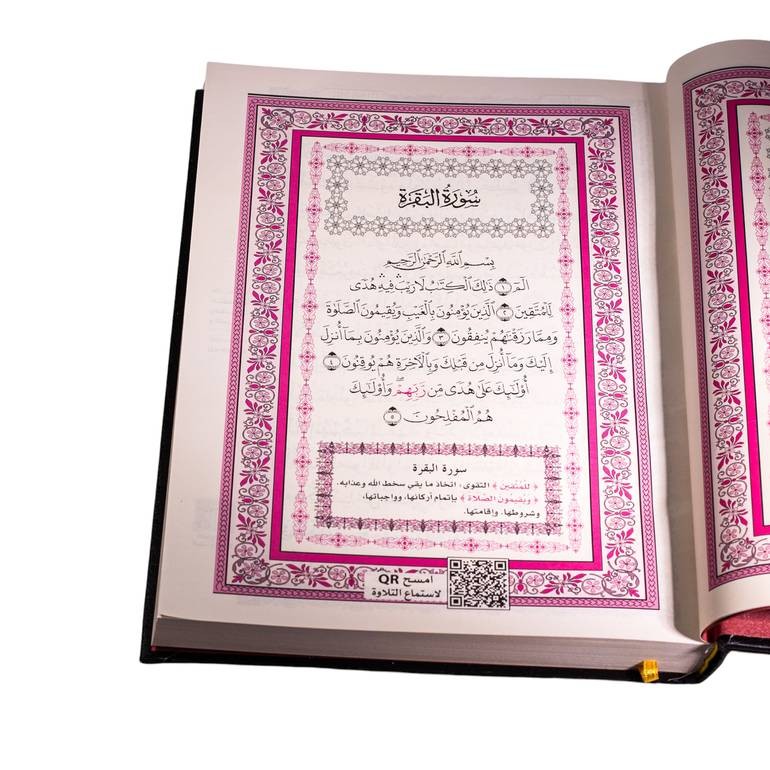 سُورَةُ البَقَرَةِ
بِسْمِ ٱللَّهِ ٱلرَّحْمَٰنِ ٱلرَّحِيمِ
الٓمٓ ١ ذَٰلِكَ ٱلْكِتَٰبُ لَا رَيْبَ ۛ فِيهِ ۛ هُدًى
لِّلْمُتَّقِينَ ٢ ٱلَّذِينَ يُؤْمِنُونَ بِٱلْغَيْبِ وَيُقِيمُونَ ٱلصَّلَوٰةَ
وَمِمَّا رَزَقْنَٰهُمْ يُنفِقُونَ ٣ وَٱلَّذِينَ يُؤْمِنُونَ بِمَآ أُنزِلَ
إِلَيْكَ وَمَآ أُنزِلَ مِن قَبْلِكَ وَبِٱلْءَاخِرَةِ هُمْ يُوقِنُونَ ٤
أُو۟لَٰٓئِكَ عَلَىٰ هُدًى مِّن رَّبِّهِمْ ۖ وَأُو۟لَٰٓئِكَ
هُمُ ٱلْمُفْلِحُونَ ٥
سورة البقرة
﴿ للمتقين ﴾ التقوى، اتخاذ ما يقي سخط الله وعذابه.
﴿ ويقيمون الصلاة ﴾ بإتمام أركانها، وواجباتها،
وشروطها، وإقامتها.
امسح QR
لاستماع التلاوة